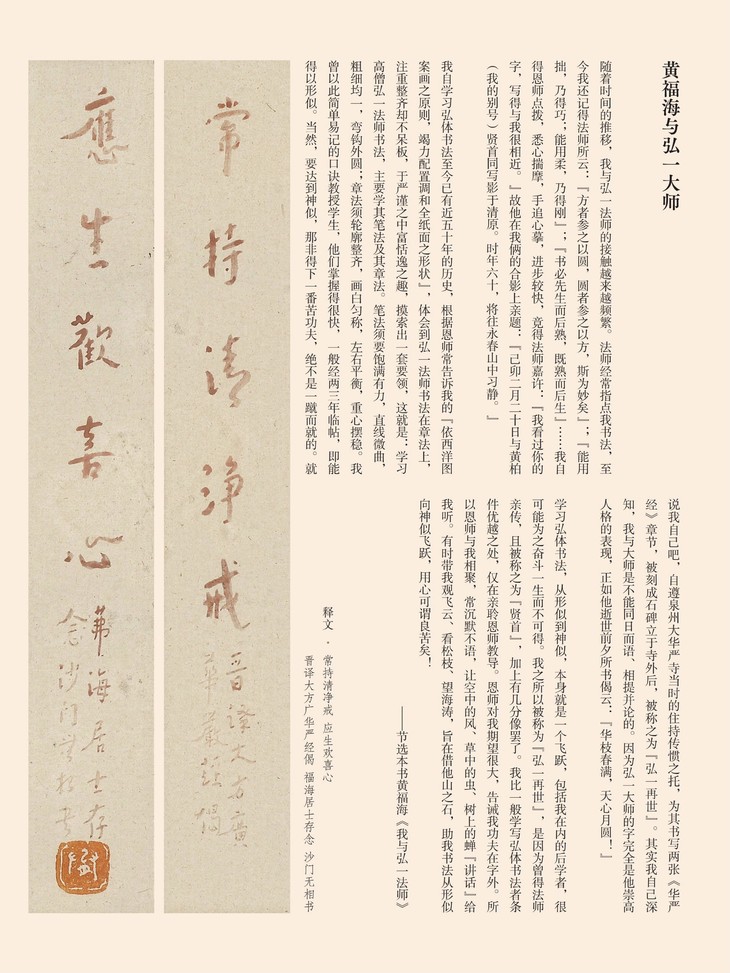 黄福海与弘一大师
随着时间的推移，我与弘一法师的接触越来越频繁。法师经常指点我书法，至
今我还记得法师所云：『方者参之以圆，圆者参之以方，斯为妙矣』；『能用
拙，乃得巧；能用柔，乃得刚』；『书必先生而后熟，既熟而后生』……我自
得恩师点拨，悉心揣摩，手追心摹，进步较快，竟得法师嘉许：『我看过你的
字，写得与我很相近。』故他在我俩的合影上亲题：『己卯二月二十日与黄柏
（我的别号）贤首同写影于清原。时年六十，将往永春山中习静。』
我自学习弘体书法至今已有近五十年的历史，根据恩师常告诉我的『依西洋图
案画之原则，竭力配置调和全纸面之形状』，体会到弘一法师书法在章法上，
注重整齐却不呆板，于严谨之中富恬逸之趣，摸索出一套要领，这就是：学习
高僧弘一法师书法，主要学其笔法及其章法。笔法须要饱满有力，直线微曲，
粗细均一，弯钩外圆；章法须轮廓整齐，画白匀称，左右平衡，重心摆稳。我
曾以此简单易记的口诀教授学生，他们掌握得很快，一般经两三年临帖，即能
得以形似。当然，要达到神似，那非得下一番苦功夫，绝不是一蹴而就的。就
说我自己吧，自遵泉州大华严寺当时的住持传惯之托，为其书写两张《华严
经》章节，被刻成石碑立于寺外后，被称之为『弘一再世』。其实我自己深
知，我与大师是不能同日而语、相提并论的。因为弘一大师的字完全是他崇高
人格的表现，正如他逝世前夕所书偈云：『华枝春满，天心月圆！』
学习弘体书法，从形似到神似，本身就是一个飞跃，包括我在内的后学者，很
可能为之奋斗一生而不可得。我之所以被称为『弘一再世』，是因为曾得法师
亲传，且被称之为『贤首』，加上有几分像罢了。我比一般学写弘体书法者条
件优越之处，仅在亲聆恩师教导。恩师对我期望很大，告诫我功夫在字外。所
以恩师与我相聚，常沉默不语，让空中的风、草中的虫、树上的蝉『讲话』给
我听。有时带我观飞云、看松枝、望海涛，旨在借他山之石，助我书法从形似
向神似飞跃，用心可谓良苦矣！
——节选本书黄福海《我与弘一法师》
释文 · 常持清净戒 应生欢喜心
晋译大方广华严经偈 福海居士存念 沙门无相书
常持清净戒
晋譯大方廣
華嚴經偈
應生歡喜心
福海居士存
念沙門無相書